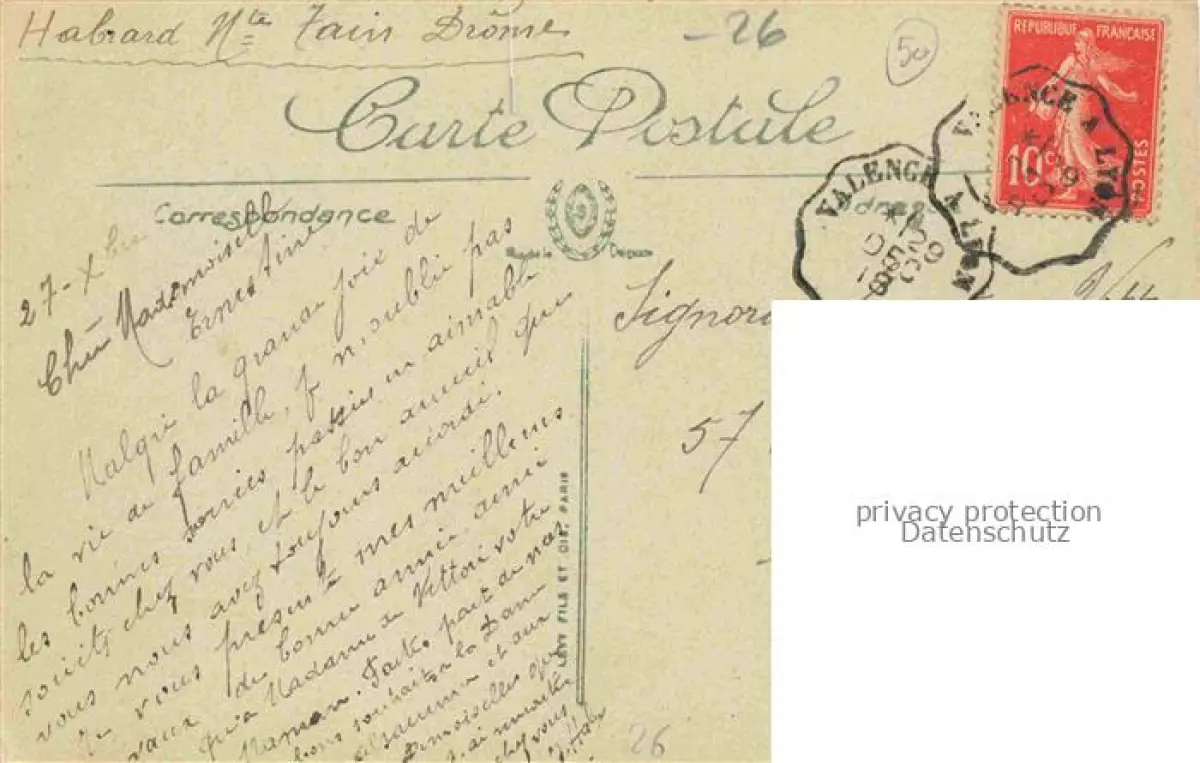 Habrard Nte Tain Drôme
- 26
50
Carte Postale
RÉPUBLIQUE FRANÇAISE
10c
POSTES
VALENCE A LYON
VALENCE A LYON
29
DEC
Correspondance
Adresse
27 - Xbre
Chère Mademoiselle
Ernestine
Malgré la grande joie de
la vie de famille, je n'oublie pas
les bonnes soirées passées en aimable
société chez vous et le bon accueil que
vous nous avez toujours accordé.
Je vous présente mes meilleurs
vœux de bonne année ainsi
qu'à Madame de Vettori votre
Maman. Faites part de nos
bons souhaits à la Dame
et aux
Demoiselles
chez vous
Signor
57
LEVY FILS ET CIE, PARIS
26
privacy protection
Datenschutz